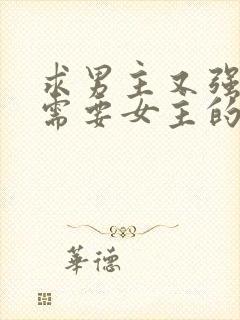 求男主又强
需要女主的
華德